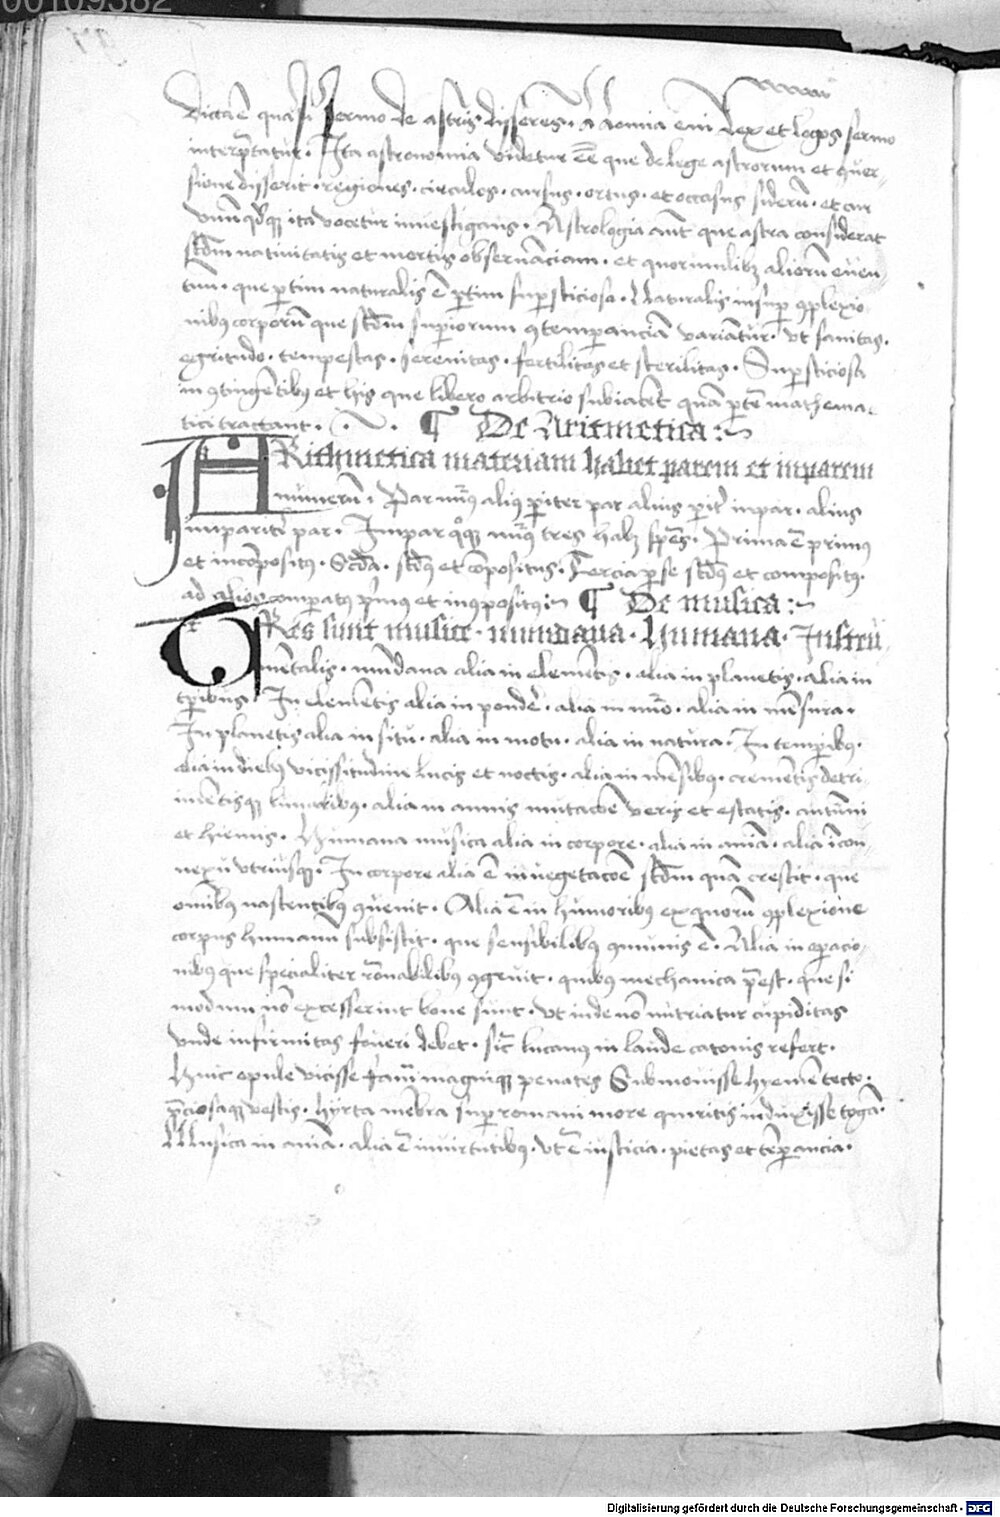 00109382
dicta ē quasi sermo de astris disserens. Nomia enī lex et logos sermo
interp̄tatur. Ita astronomia videtur eē que de lege astrorum et ꝯuer-
sione disserit. regiones. circulos. cursus. ortus. et occasus siderū. et cur
vnūqd̄qꝫ ita vocetur inuestigans. Astrologia aut̄ que astra considerat
scd̄m natiuitatis et mortis obseruanciam. et quorumlibꝫ aliorū euen-
tuu. que ꝑtim naturalis ē ꝑtim suꝑsticiosa. Naturalis insuꝑ ꝯplexio-
nibꝰ corporū que scd̄m suꝑiorum ꝯtemꝑanciā variātur. vt sanitas.
egritudo. tempestas. serenitas. fertilitas et sterilitas. Suꝑsticiosa
in ꝯtingētibꝰ et his que libero arbitrio subiacēt quā ꝑtē mathema-
tici tractant.
¶ De Aritmetica:~
ARithmetica materiam habet parem et inparem
numerū. Par nūꝰ aliꝰ ꝑiter par alius ꝑit̄ inpar. alius
impariter par. Impar qꝫ nūꝰ tres habꝫ spēs. Prima ē primꝰ
et incōpositꝰ. Scd̄a. scd̄ꝰ et cōpositus. Tercia ꝑ se scd̄ꝰ et compositꝰ.
ad alios comꝑatꝰ p̄mꝰ et inꝯpositꝰ:~ ¶ De musica:~
TRes sunt musice. mundana. humana. Instru-
mētalis. mūdana alia in elemētis. alia in planetis. alia in
tꝑibus. In elemētis alia in pondē. alia in nūo. alia in mēsura.
In planetis alia in situ. alia in motu. alia in natura. In temꝑibꝰ.
alia in diebꝰ vicissitudine lucis et noctis. alia in mēsibꝰ. cremētis detri-
mētisqꝫ lunaribꝰ. alia in annis mutacōe veris et estatis. autūni
et hiemis. Humana musica alia in corpore. alia in aniā. alia ī con-
nexu vtriusqꝫ. In corpore alia ē in vegetacōe scd̄m quā crescit. que
omībꝰ nascentibꝰ ꝯuenit. Alia ē in humoribus ex quorū ꝯplexione
corpus humanū subsistit. que sensibilibꝰ ꝯmunis ē. Alia in oꝑacio-
nibꝰ que specialiter rōnabilibꝰ ꝯgruit. quibus mechanica p̄est. que si
modum nō excesserint bone sunt. vt inde nō nutriatur cupiditas
vnde infirmitas foueri debet. sic̄ lucanus in laude catonis refert.
Huic epule vicisse famē magniqꝫ penates Submouisse hyemē tecto.
p̄ciosaqꝫ vestis. hyrta mēbra suꝑ romani more quiritis induxisse togā.
Musica in aniā. alia ē in virtutibꝰ. vt ē iusticia. pietas et tēꝑancia.
Digitalisierung gefördert durch die Deutsche Forschungsgemeinschaft - DFG